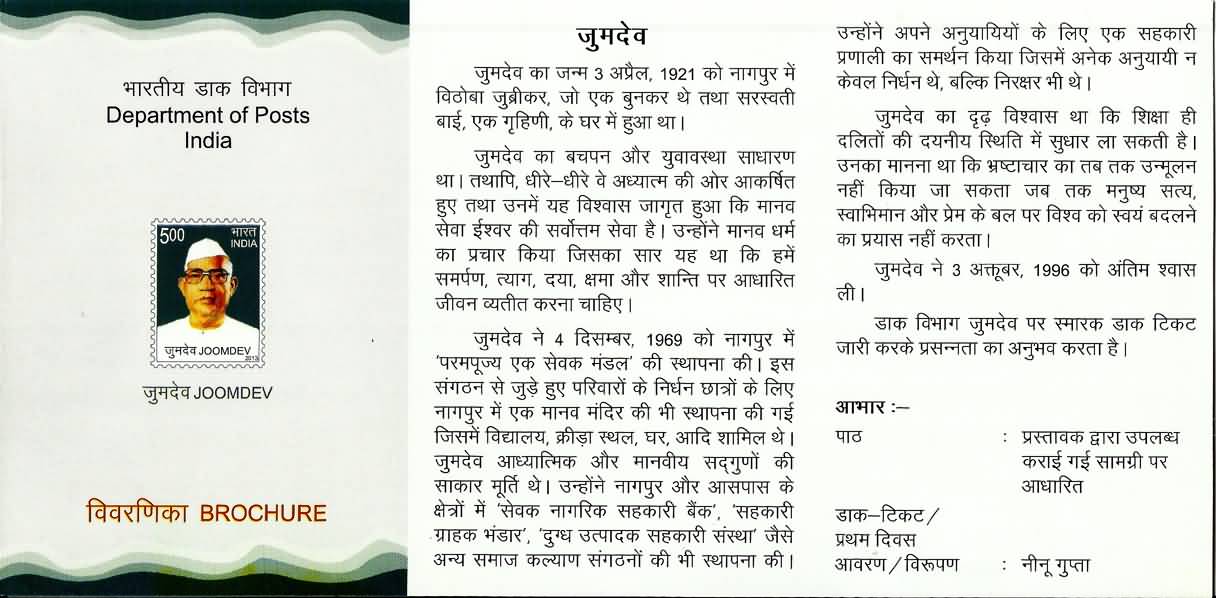 भारतीय डाक विभाग
Department of Posts
India
5.00
भारत
INDIA
जुमदेव JOOMDEV
2013
जुमदेव JOOMDEV
विवरणिका BROCHURE
जुमदेव
जुमदेव का जन्म 3 अप्रैल, 1921 को नागपुर में
विठोबा जुब्रीकर, जो एक बुनकर थे तथा सरस्वती
बाई, एक गृहिणी, के घर में हुआ था।
जुमदेव का बचपन और युवावस्था साधारण
था। तथापि, धीरे–धीरे वे अध्यात्म की ओर आकर्षित
हुए तथा उनमें यह विश्वास जागृत हुआ कि मानव
सेवा ईश्वर की सर्वोत्तम सेवा है। उन्होंने मानव धर्म
का प्रचार किया जिसका सार यह था कि हमें
समर्पण, त्याग, दया, क्षमा और शान्ति पर आधारित
जीवन व्यतीत करना चाहिए।
जुमदेव ने 4 दिसम्बर, 1969 को नागपुर में
'परमपूज्य एक सेवक मंडल' की स्थापना की। इस
संगठन से जुड़े हुए परिवारों के निर्धन छात्रों के लिए
नागपुर में एक मानव मंदिर की भी स्थापना की गई
जिसमें विद्यालय, क्रीड़ा स्थल, घर, आदि शामिल थे।
जुमदेव आध्यात्मिक और मानवीय सद्‌गुणों की
साकार मूर्ति थे। उन्होंने नागपुर और आसपास के
क्षेत्रों में 'सेवक नागरिक सहकारी बैंक', 'सहकारी
ग्राहक भंडार', 'दुग्ध उत्पादक सहकारी संस्था' जैसे
अन्य समाज कल्याण संगठनों की भी स्थापना की।
उन्होंने अपने अनुयायियों के लिए एक सहकारी
प्रणाली का समर्थन किया जिसमें अनेक अनुयायी न
केवल निर्धन थे, बल्कि निरक्षर भी थे।
जुमदेव का दृढ़ विश्वास था कि शिक्षा ही
दलितों की दयनीय स्थिति में सुधार ला सकती है।
उनका मानना था कि भ्रष्टाचार का तब तक उन्मूलन
नहीं किया जा सकता जब तक मनुष्य सत्य,
स्वाभिमान और प्रेम के बल पर विश्व को स्वयं बदलने
का प्रयास नहीं करता।
जुमदेव ने 3 अक्तूबर, 1996 को अंतिम श्वास
ली।
डाक विभाग जुमदेव पर स्मारक डाक टिकट
जारी करके प्रसन्नता का अनुभव करता है।
आभार :–
पाठ : प्रस्तावक द्वारा उपलब्ध
कराई गई सामग्री पर
आधारित
डाक–टिकट/
प्रथम दिवस
आवरण/विरूपण : नीनू गुप्ता